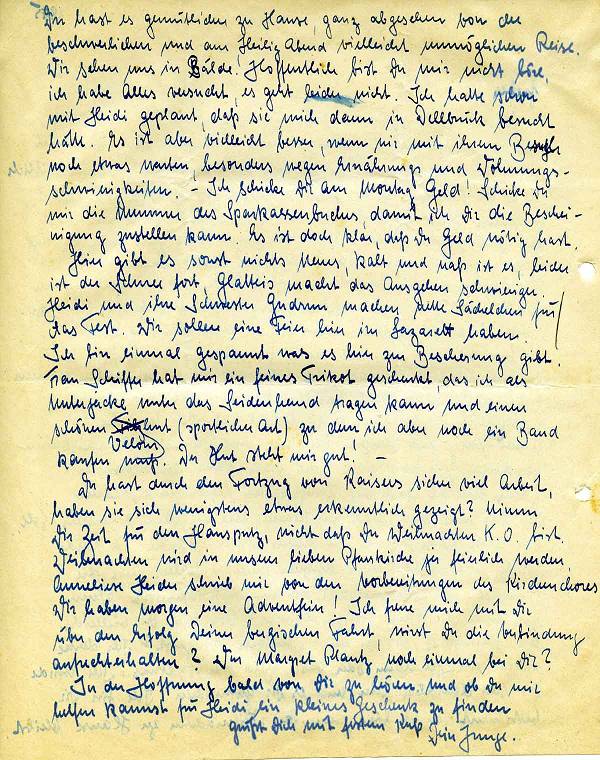 Du hast es gemütlicher zu Hause, ganz abgesehen von der
beschwerlichen und am Heilig Abend vielleicht unmöglichen Reise.
Wir sehen uns in Bälde. Hoffentlich bist Du mir nicht böse,
ich habe Alles versucht, es geht leider nicht. Ich hatte schon
mit Heidi geplant, daß sie mich dann in Dellbrück besucht
hätte. Es ist aber vielleicht besser, wenn wir mit ihrem Besuch
noch etwas warten besonders wegen Ernährungs und Wohnungs-
schwierigkeiten. – Ich schicke Dir am Montag Geld! Schicke Du
mir die Nummer des Sparkassenbuches, damit ich Dir die Beschei-
nigung zustellen kann. Es ist doch klar, daß Du Geld nötig hast.
Hier gibt es sonst nichts Neues, kalt und naß ist es, leider
ist der Schnee fort, Glatteis macht das Ausgehen schwierig.
Heidi und ihre Schwester Gudrun machen nette Sächelchen für
das Fest. Wir sollen eine Feier hier im Lazarett haben.
Ich bin einmal gespannt was es hier zur Bescherung gibt.
Frau Schiffer hat mir ein feines Trikot geschenkt, das ich als
Unterjacke unter das Seidenhemd tragen kann und einen
schönen Velour (sportlicher Art) zu dem ich aber noch ein Band
kaufen muß. Der Hut steht mir gut! –
Du hast durch den Fortzug von Kaisers sicher viel Arbeit,
haben sie sich wenigstens etwas erkenntlich gezeigt? Nimm
Dir Zeit für den Hausputz, nicht daß Du Weihnachten K.O. bist.
Weihnachten wird in unserer lieben Pfarrkirche ja feierlich werden,
Anneliese Heider schrieb mir von den Vorbereitungen des Kirchenchores
Wir haben morgen eine Adventfeier! Ich freue mich mit Dir
über den Erfolg Deiner bergischen Fahrt, wirst Du die Verbindung
aufrechterhalten? War Margret Plantz noch einmal bei Dir?
In der Hoffnung bald von Dir zu hören und ob Du mir
helfen kannst für Heidi ein kleines Geschenk zu finden
grüßt Dich mit festem Kuß Dein Junge.